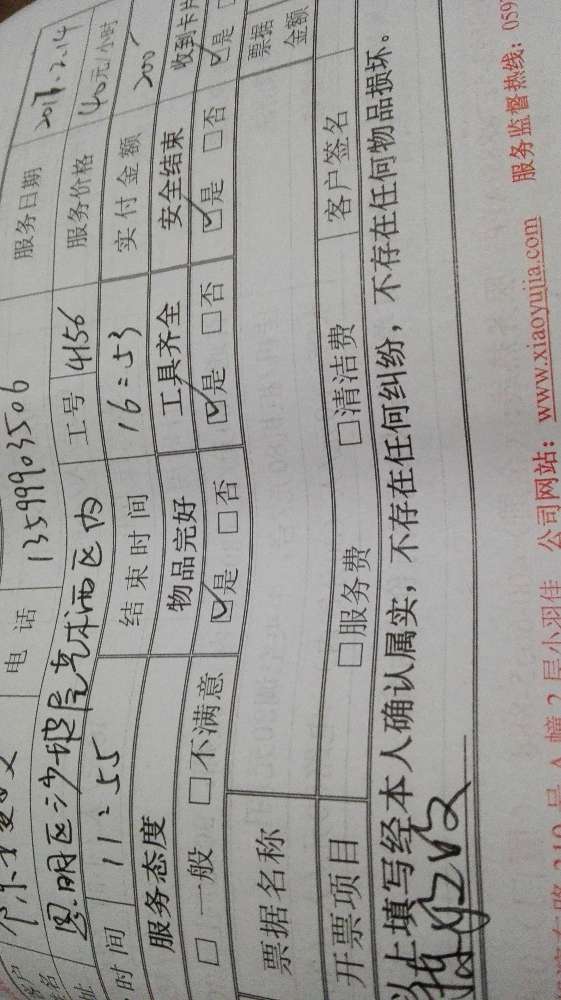 电话 13599903506 服务日期 2017.2.14
思明区沙坡尾艺术西区内 工号 4156 服务价格 40元/小时
时间 11:55 结束时间 16:53 实付金额 200
服务态度 物品完好 工具齐全 安全结束 收到卡片
□一般 □不满意 ☑是 □否 ☑是 □否 ☑是 □否 ☑是
票据名称 票据金额
开票项目 □服务费 □清洁费 客户签名
以上填写经本人确认属实，不存在任何纠纷，不存在任何物品损坏。
幢2层小羽佳 公司网站：www.xiaoyujia.com 服务监督热线：059